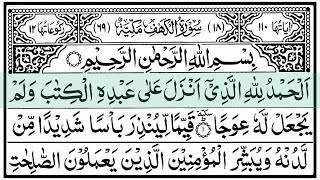 اٰیاتها ۱۱۰ (۱۸) سُوْرَةُ الْكَهْفِ مَكِّيَّةٌ (۶۹) رکوعاتها ۱۲
بِسْمِ اللّٰهِ الرَّحْمٰنِ الرَّحِيْمِ
اَلْحَمْدُ لِلّٰهِ الَّذِيْۤ اَنْزَلَ عَلٰى عَبْدِهِ الْكِتٰبَ وَلَمْ
يَجْعَلْ لَّهٗ عِوَجًا ۱ قَيِّمًا لِّيُنْذِرَ بَاْسًا شَدِيْدًا مِّنْ
لَّدُنْهُ وَيُبَشِّرَ الْمُؤْمِنِيْنَ الَّذِيْنَ يَعْمَلُوْنَ الصّٰلِحٰتِ